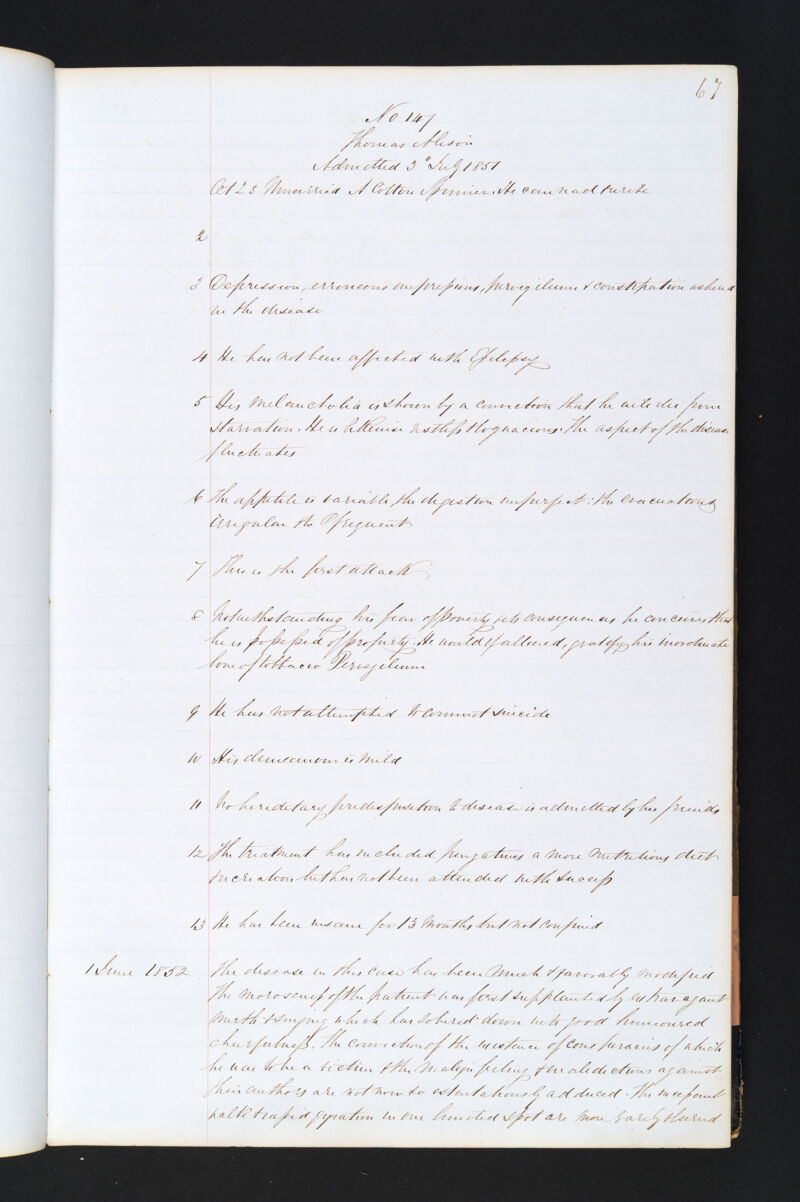 67
No 147
Thomas Alison
Admitted 3d July 1851
Aet 28 Unmarried A Cotton Spinner. He can read & write
2
3 Depression, erroneous impressions, pervigilium & constipation ushered
in the disease
4 He has not been affected with Epilepsy
5 His Melancholia is shown by a conviction that he will die from
Starvation. He is likewise restless & loquacious. The aspect of the disease
fluctuates
6 The appetite is variable, the digestion imperfect: the evacuations
irregular tho frequent
7 This is the first attack
8 Notwithstanding his fear of poverty & its consequences he conceives that
he is possessed of property. He would if allowed, gratify his inordinate
love of tobbacco Pervigilium
9 He has not attempted to commit suicide
10 His demeanour is mild
11 No hereditary predisposition to disease is admitted by his friends
12 The treatment has included purgatives a more nutritious diet
recreation but has not been attended with success
13 He has been insane for 13 Months but not confined
1 June 1852 The disease in this case has been much & favorably modified
The moroseness of the patient was first supplanted by extravagant
mirth & singing which has sobered down into good humoured
cheerfulness. The conviction of the existence of conspiracies of which
he was to be a victim & the malign feeling & maledictions against
their authors are not now so ostentatiously adduced. The incessant
walk & rapid gyration in one limited spot are more rarely observed